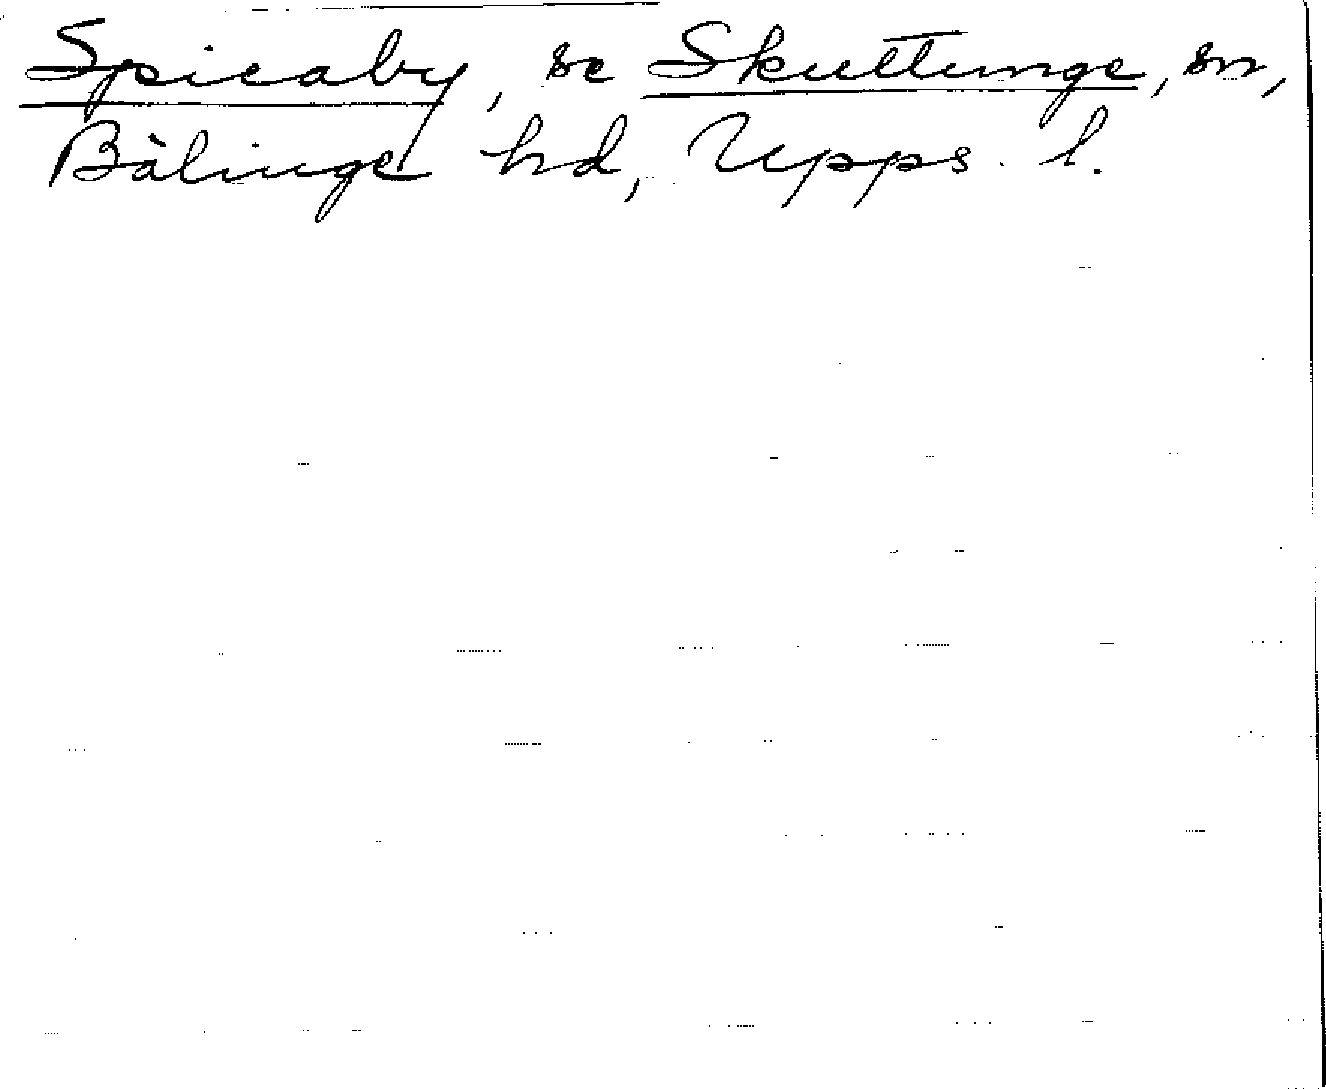 Spicaby, se Skuttunge, sn,
Bälinge hd, Upps. l.